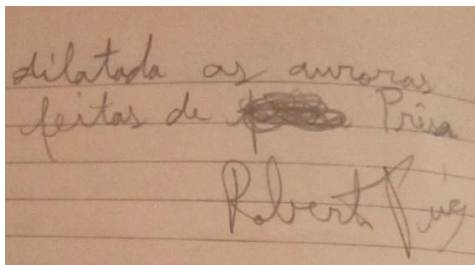 dilatada as auroras
feitas de Prisa
Robert